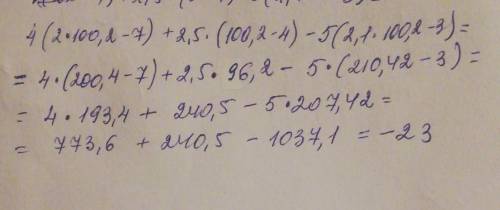 4(2·100,2-7)+2,5·(100,2-4)-5(2,1·100,2-3)=
=4·(200,4-7)+2,5·96,2-5·(210,42-3)=
=4·193,4+240,5-5·207,42=
=773,6+240,5-1037,1=-23